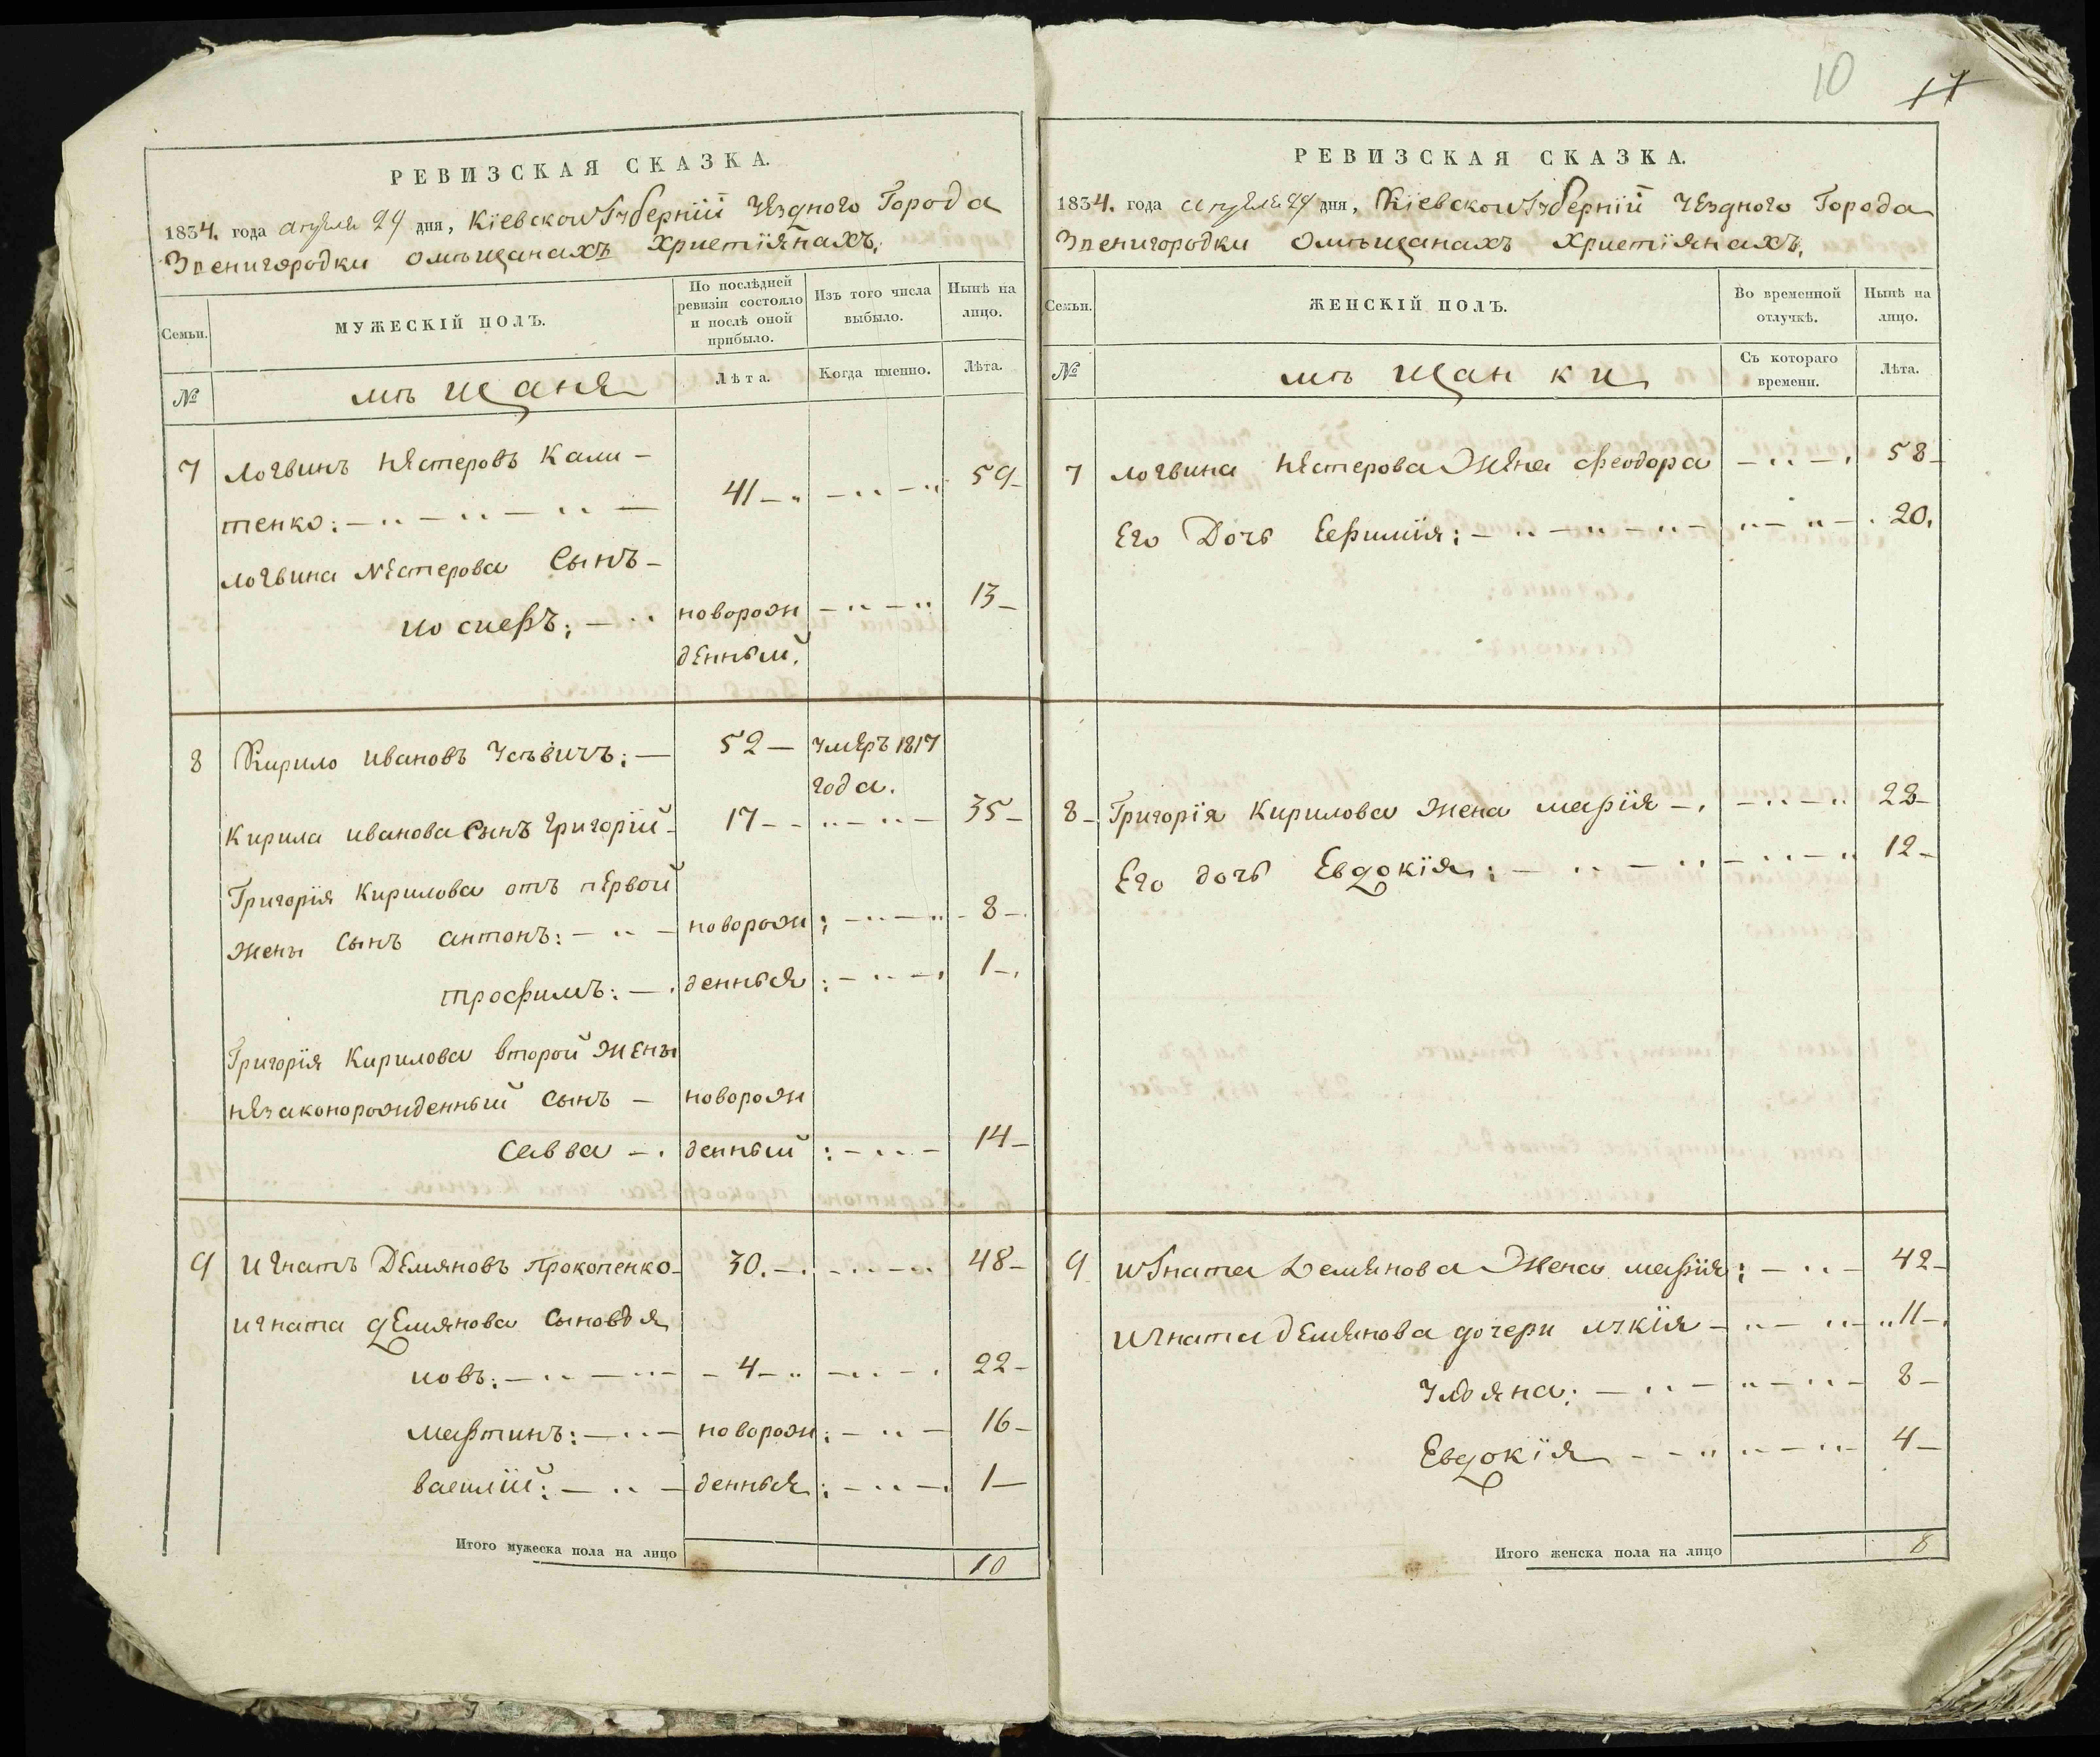 10
17
РЕВИЗСКАЯ СКАЗКА.
1834. года апреля 24 дня, Кіевской Губерніи уезднаго Города
Звенигородки о мѣщанахъ христіянахъ.
Семьи.
МУЖЕСКІЙ ПОЛЪ.
По послѣдней
ревизіи состояло
и послѣ оной
прибыло.
Изъ того числа
выбыло.
Нынѣ на
лицо.
№
мѣщане
Лѣта.
Когда именно.
Лѣта.
7 Логвинъ Нестеровъ Кали-
тенко: 41 59
Логвина Нестерова Сынъ
иосифъ: новорож 13
денный.
8 Кирило Ивановъ Усѣвичъ: 52 умеръ 1817
года.
Кирила иванова сынъ григорій 17 35
Григорія Кирилова отъ первой
жены сынъ антонъ: новорож 8
трофимъ: денныя 1
Григорія Кирилова второй жены
незаконорожденный сынъ новорож
савва денный 14
9 игнатъ Демяновъ прокопенко 30. 48
игната демянова сыновья
иовъ: 4 22
мартинъ: новорож 16
василій: денныя 1
Итого мужеска пола на лицо 10
РЕВИЗСКАЯ СКАЗКА.
1834. года апреля 24 дня, Кіевской Губерніи уезднаго Города
Звенигородки о мѣщанахъ христіянахъ.
Семьи.
ЖЕНСКІЙ ПОЛЪ.
Во временной
отлучкѣ.
Нынѣ на
лицо.
№
мѣщанки
Съ котораго
времени.
Лѣта.
7 логвина Нестерова Жена феодора 58
Его Дочь Ефимія: 20.
8 Григорія Кирилова Жена марія 28
Его дочь Евдокія: 12
9 игната Демянова Жена марія: 42
игната демянова дочери лукія 11
ульяна: 8
Евдокія 4
Итого женска пола на лицо 8